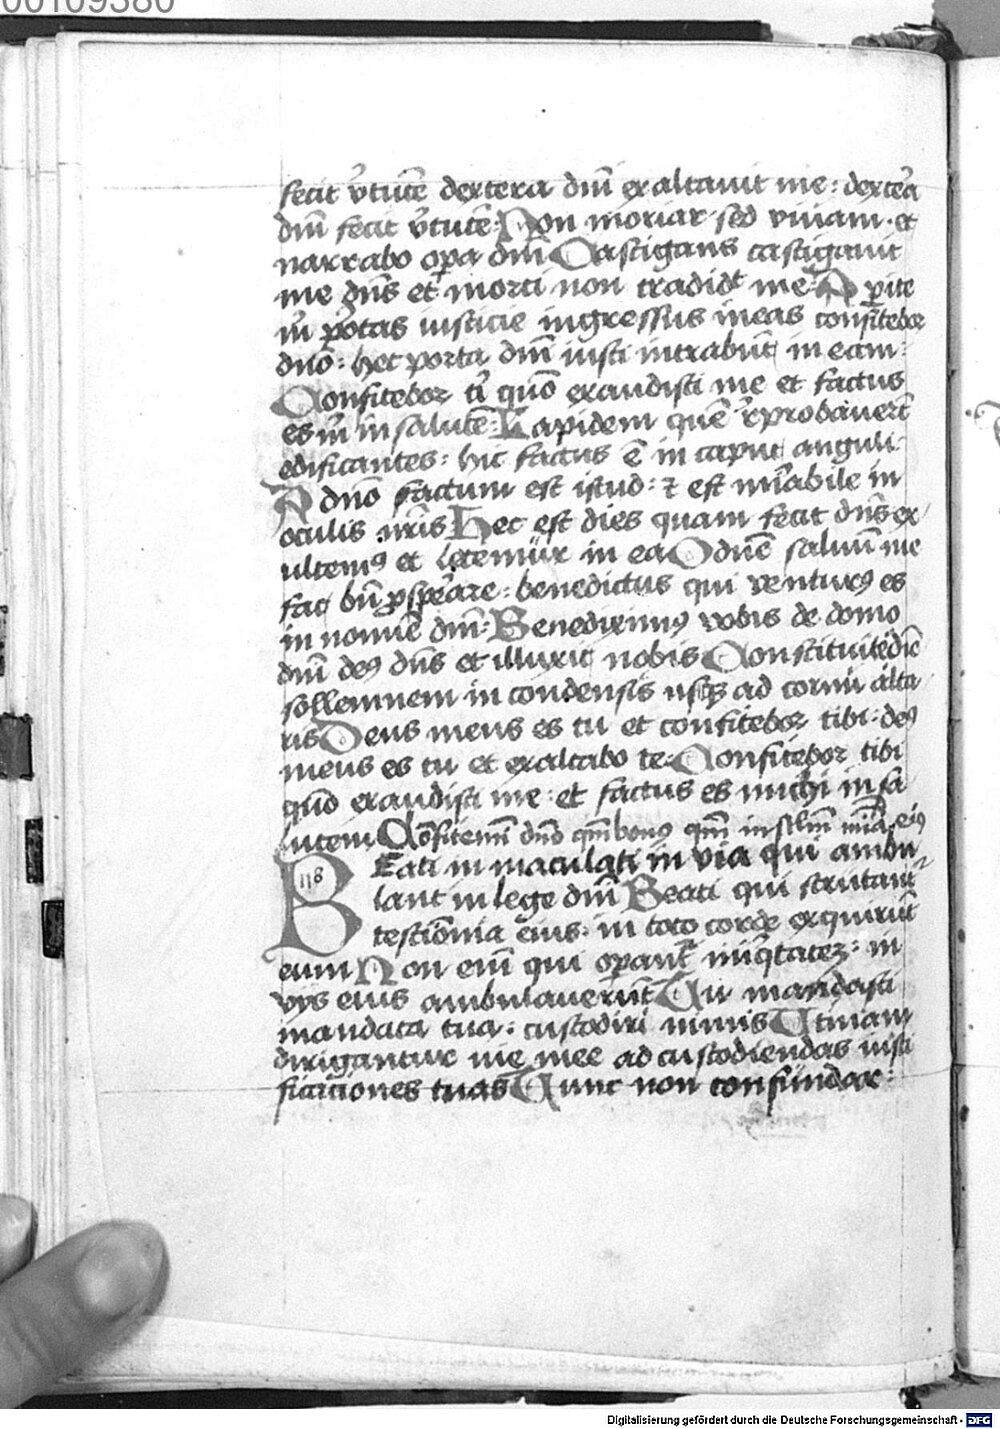 00109380
fecit v̾tutē dextera dnī exaltavit me : dext̾a
dnī fecit v̾tutē : Non moriar sed vivam · et
narrabo opa dnī Castigans castigavit
me dns̄ et morti non tradidt me : Aperite
m̄ portas iusticie ingressus in eas confitebor
dnō : hec porta dnī iusti intrabūt in eam :
Confitebor tī quō exaudisti me et factus
es m̄ in salutē : Lapidem quē rprobaverūt
edificantes : hic factus ē in caput anguli ·
A dnō factum est istud : ⁊ est mīabile in
oculis nr̄is Hec est dies quam fecit dns̄ ex
ultemꝰ et letemur in ea O dnē salvū me
fac bn̄ pspare : benedictus qui venturꝰ es
in nomīe dnī : Benediximꝰ vobis de domo
dnī deꝰ dns̄ et illuxit nobis Constituite diē
sollemnem in condensis usqꝫ ad cornu alta
ris Deus meus es tu et confitebor tibi : deꝰ
meus es tu et exaltabo te : Confitebor tibi
quō exaudisti me : et factus es michi in sa
lutem Cōfitemī dnō qm̄ bonꝰ qm̄ in sclm̄ mīa eiꝰ
118
BEati in maculati in via qui ambu
lant in lege dnī Beati qui scrutant
testīonia eius : in toto corde exquirūt
eum Non enī qui opant̄ iniqtatez : in
vijs eius ambulaverūt Tu mandasti
mandata tua : custodiri nimis Utinam
dirigantur vie mee ad custodiendas iusti
ficaciones tuas Tunc non confundar :
Digitalisierung gefördert durch die Deutsche Forschungsgemeinschaft - DFG